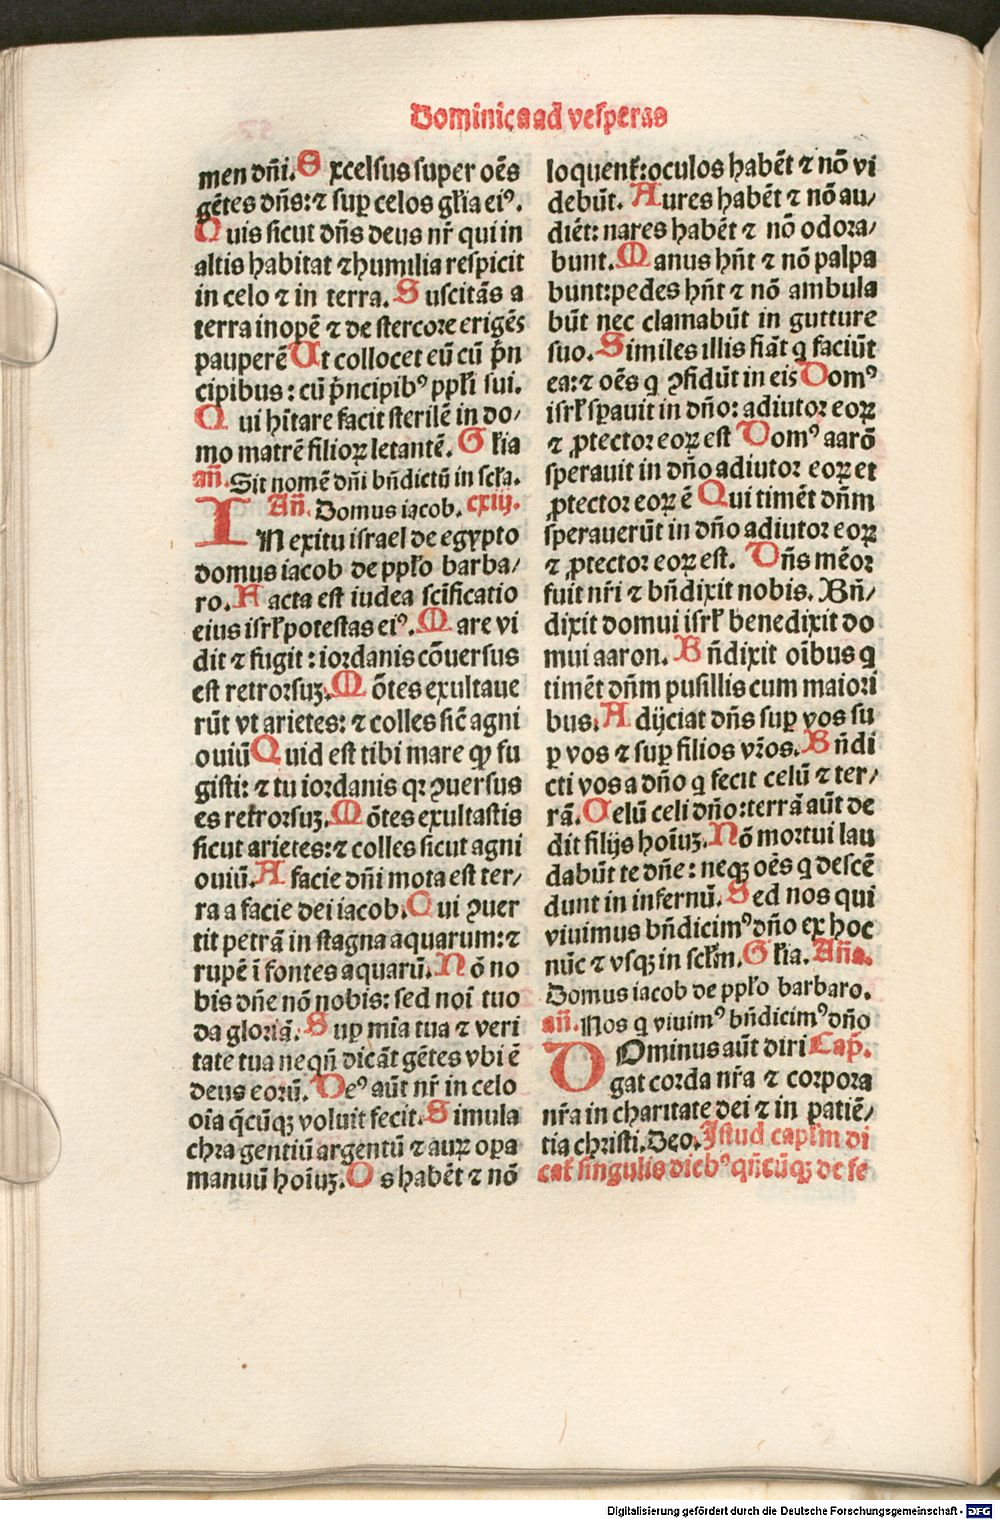 Dominica ad vesperas
men dñi. Excelsus super oēs
gētes dñs: ⁊ suꝑ celos gl̄ia eiꝰ.
Quis sicut dñs deus nr̄ qui in
altis habitat ⁊ humilia respicit
in celo ⁊ in terra. Suscitās a
terra inopē ⁊ de stercore erigēs
pauperē Ut collocet eū cū pⁱn
cipibus: cū pⁱncipibꝰ ppl̄i sui.
Qui hītare facit sterilē in do/
mo matrē filioꝝ letantē. Gl̄ia
añ. Sit nomē dñi bñdictū in scl̄a.
Añ. Domus iacob. cxiij.
IN exitu israel de egypto
domus iacob de ppl̄o barba/
ro. Facta est iudea scīficatio
eius isrl̄ potestas eiꝰ. Mare vi
dit ⁊ fugit: iordanis cōuersus
est retrorsuꝫ. Mōtes exultaue
rūt vt arietes: ⁊ colles sic̄ agni
ouiū Quid est tibi mare ꝙ fu
gisti: ⁊ tu iordanis qꝛ ꝯuersus
es retrorsuꝫ. Mōtes exultastis
sicut arietes: ⁊ colles sicut agni
ouiū. A facie dñi mota est ter/
ra a facie dei iacob. Qui ꝯuer
tit petrā in stagna aquarum: ⁊
rupē ī fontes aquarū. Nō no
bis dñe nō nobis: sed noī tuo
da gloriā. Suꝑ mīa tua ⁊ veri
tate tua neqñ dicāt gētes vbi ē
deus eorū. Deꝰ aūt nr̄ in celo
oīa q̄cūqꝫ voluit fecit. Simula
chra gentiū argentū ⁊ auꝝ oꝑa
manuū hoīuꝫ. Os habēt ⁊ nō
loquent̄: oculos habēt ⁊ nō vi
debūt. Aures habēt ⁊ nō au/
diēt: nares habēt ⁊ nō odora/
bunt. Manus hñt ⁊ nō palpa
bunt: pedes hñt ⁊ nō ambula
būt nec clamabūt in gutture
suo. Similes illis fiāt q faciūt
ea: ⁊ oēs q ꝯfidūt in eis Domꝰ
isrl̄ sꝑauit in dño: adiutor eoꝝ
⁊ ꝓtector eoꝝ est Domꝰ aarō
sperauit in dño adiutor eoꝝ et
ꝓtector eoꝝ ē Qui timēt dñm
sperauerūt in dño adiutor eoꝝ
⁊ ꝓtector eoꝝ est. Dñs mēor
fuit nr̄i ⁊ bñdixit nobis. Bñ/
dixit domui isrl̄ benedixit do
mui aaron. Bñdixit oībus q
timēt dñm pusillis cum maiori
bus. Adijciat dñs suꝑ vos su
ꝑ vos ⁊ suꝑ filios vr̄os. Bñdi
cti vos a dño q fecit celū ⁊ ter/
rā. Celū celi dño: terrā aūt de
dit filijs hoīuꝫ. Nō mortui lau
dabūt te dñe: neqꝫ oēs q descē
dunt in infernū. Sed nos qui
viuimus bñdicimꝰ dño ex hoc
nūc ⁊ vsqꝫ in scl̄m. Gl̄ia. Aña.
Domus iacob de ppl̄o barbaro.
añ. Nos q viuimꝰ bñdicimꝰ dño
DOminus aūt diri Cap̄.
gat corda nr̄a ⁊ corpora
nr̄a in charitate dei ⁊ in patiē/
tia christi. Deo. Istud capl̄m di
cat̄ singulis diebꝰ qñcūqꝫ de fe
Digitalisierung gefördert durch die Deutsche Forschungsgemeinschaft - DFG